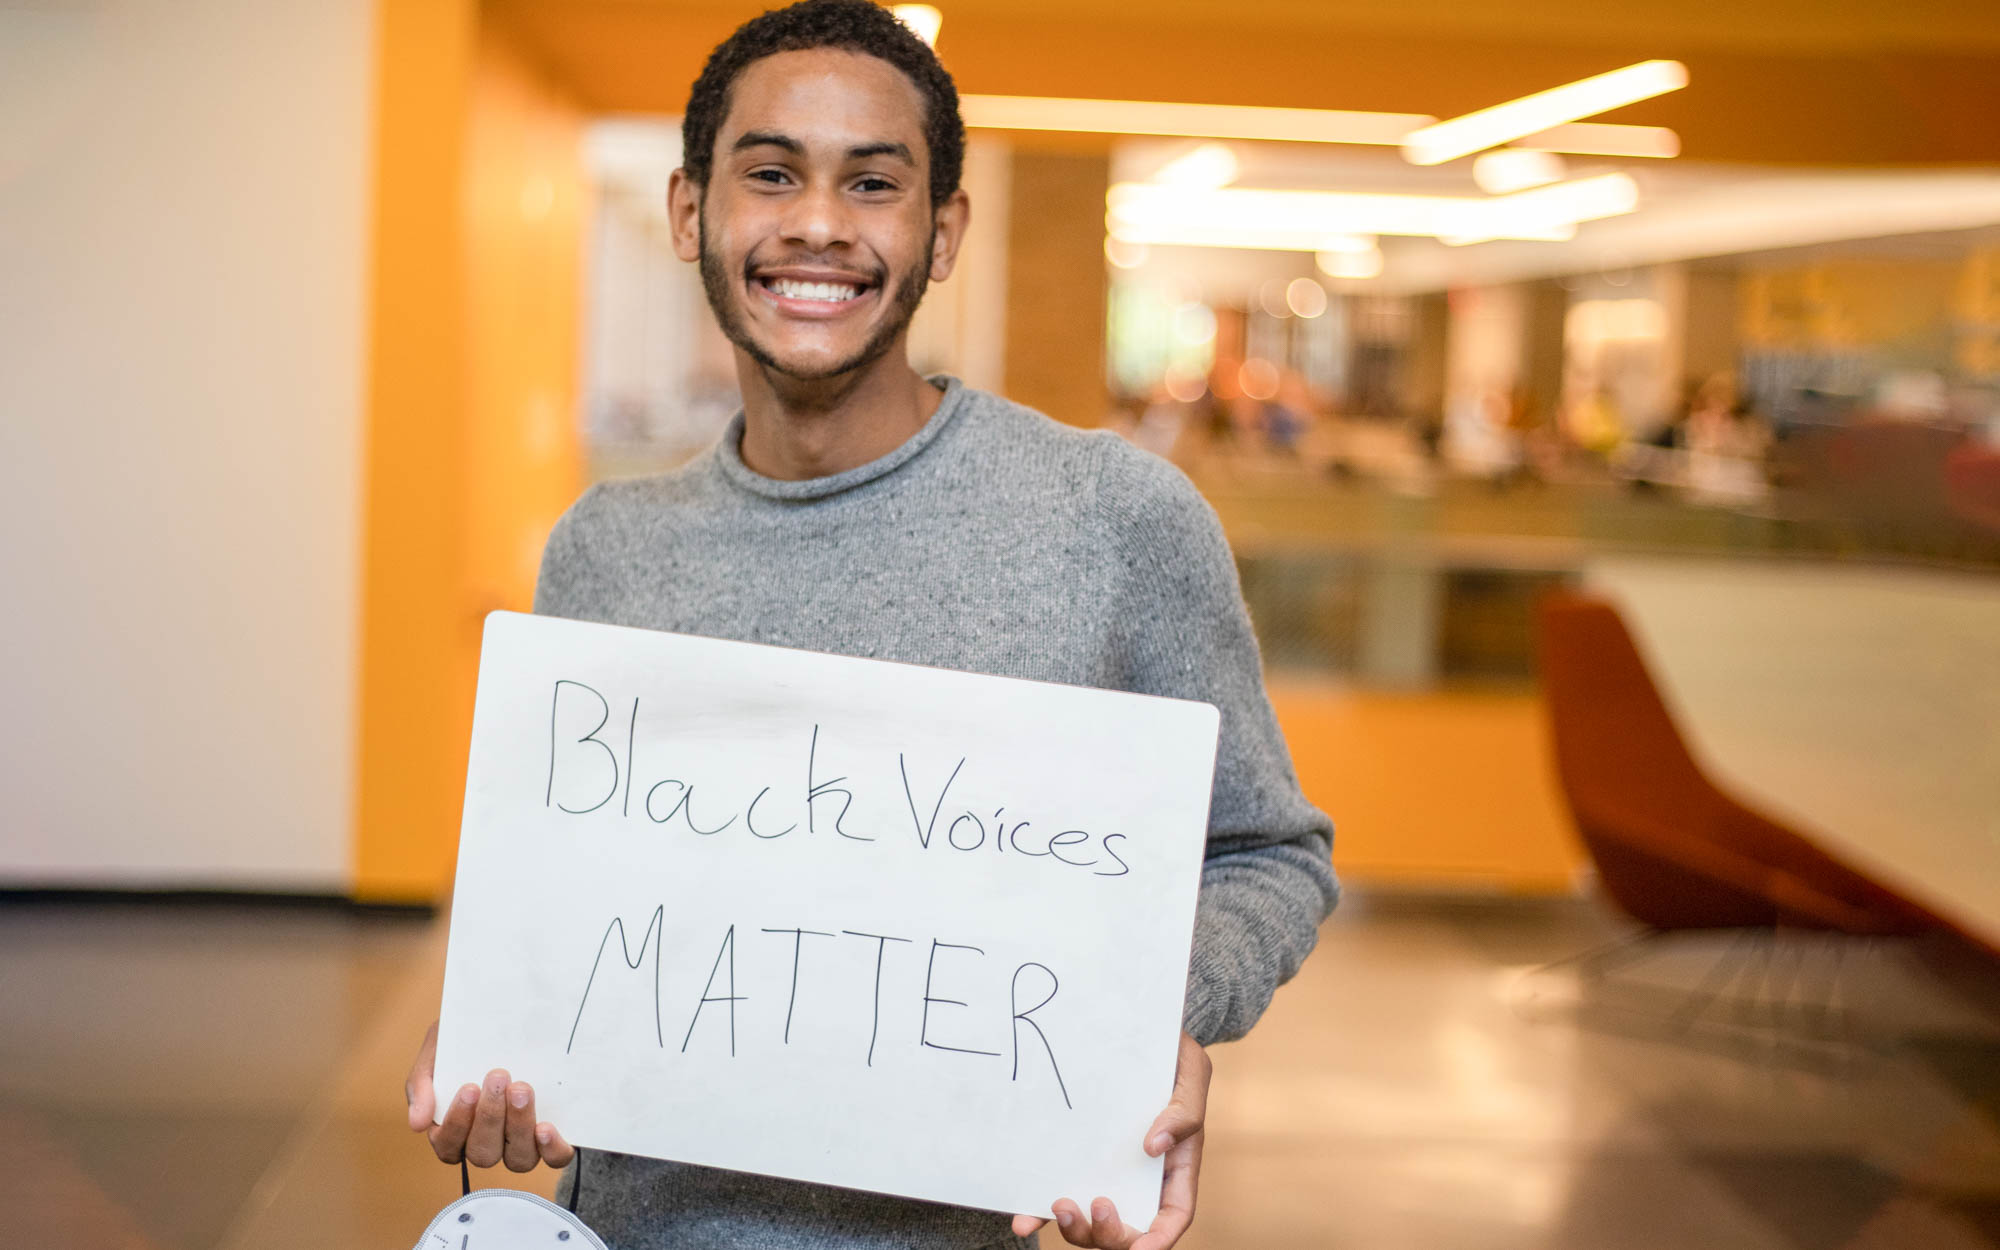 Black Voices
MATTER